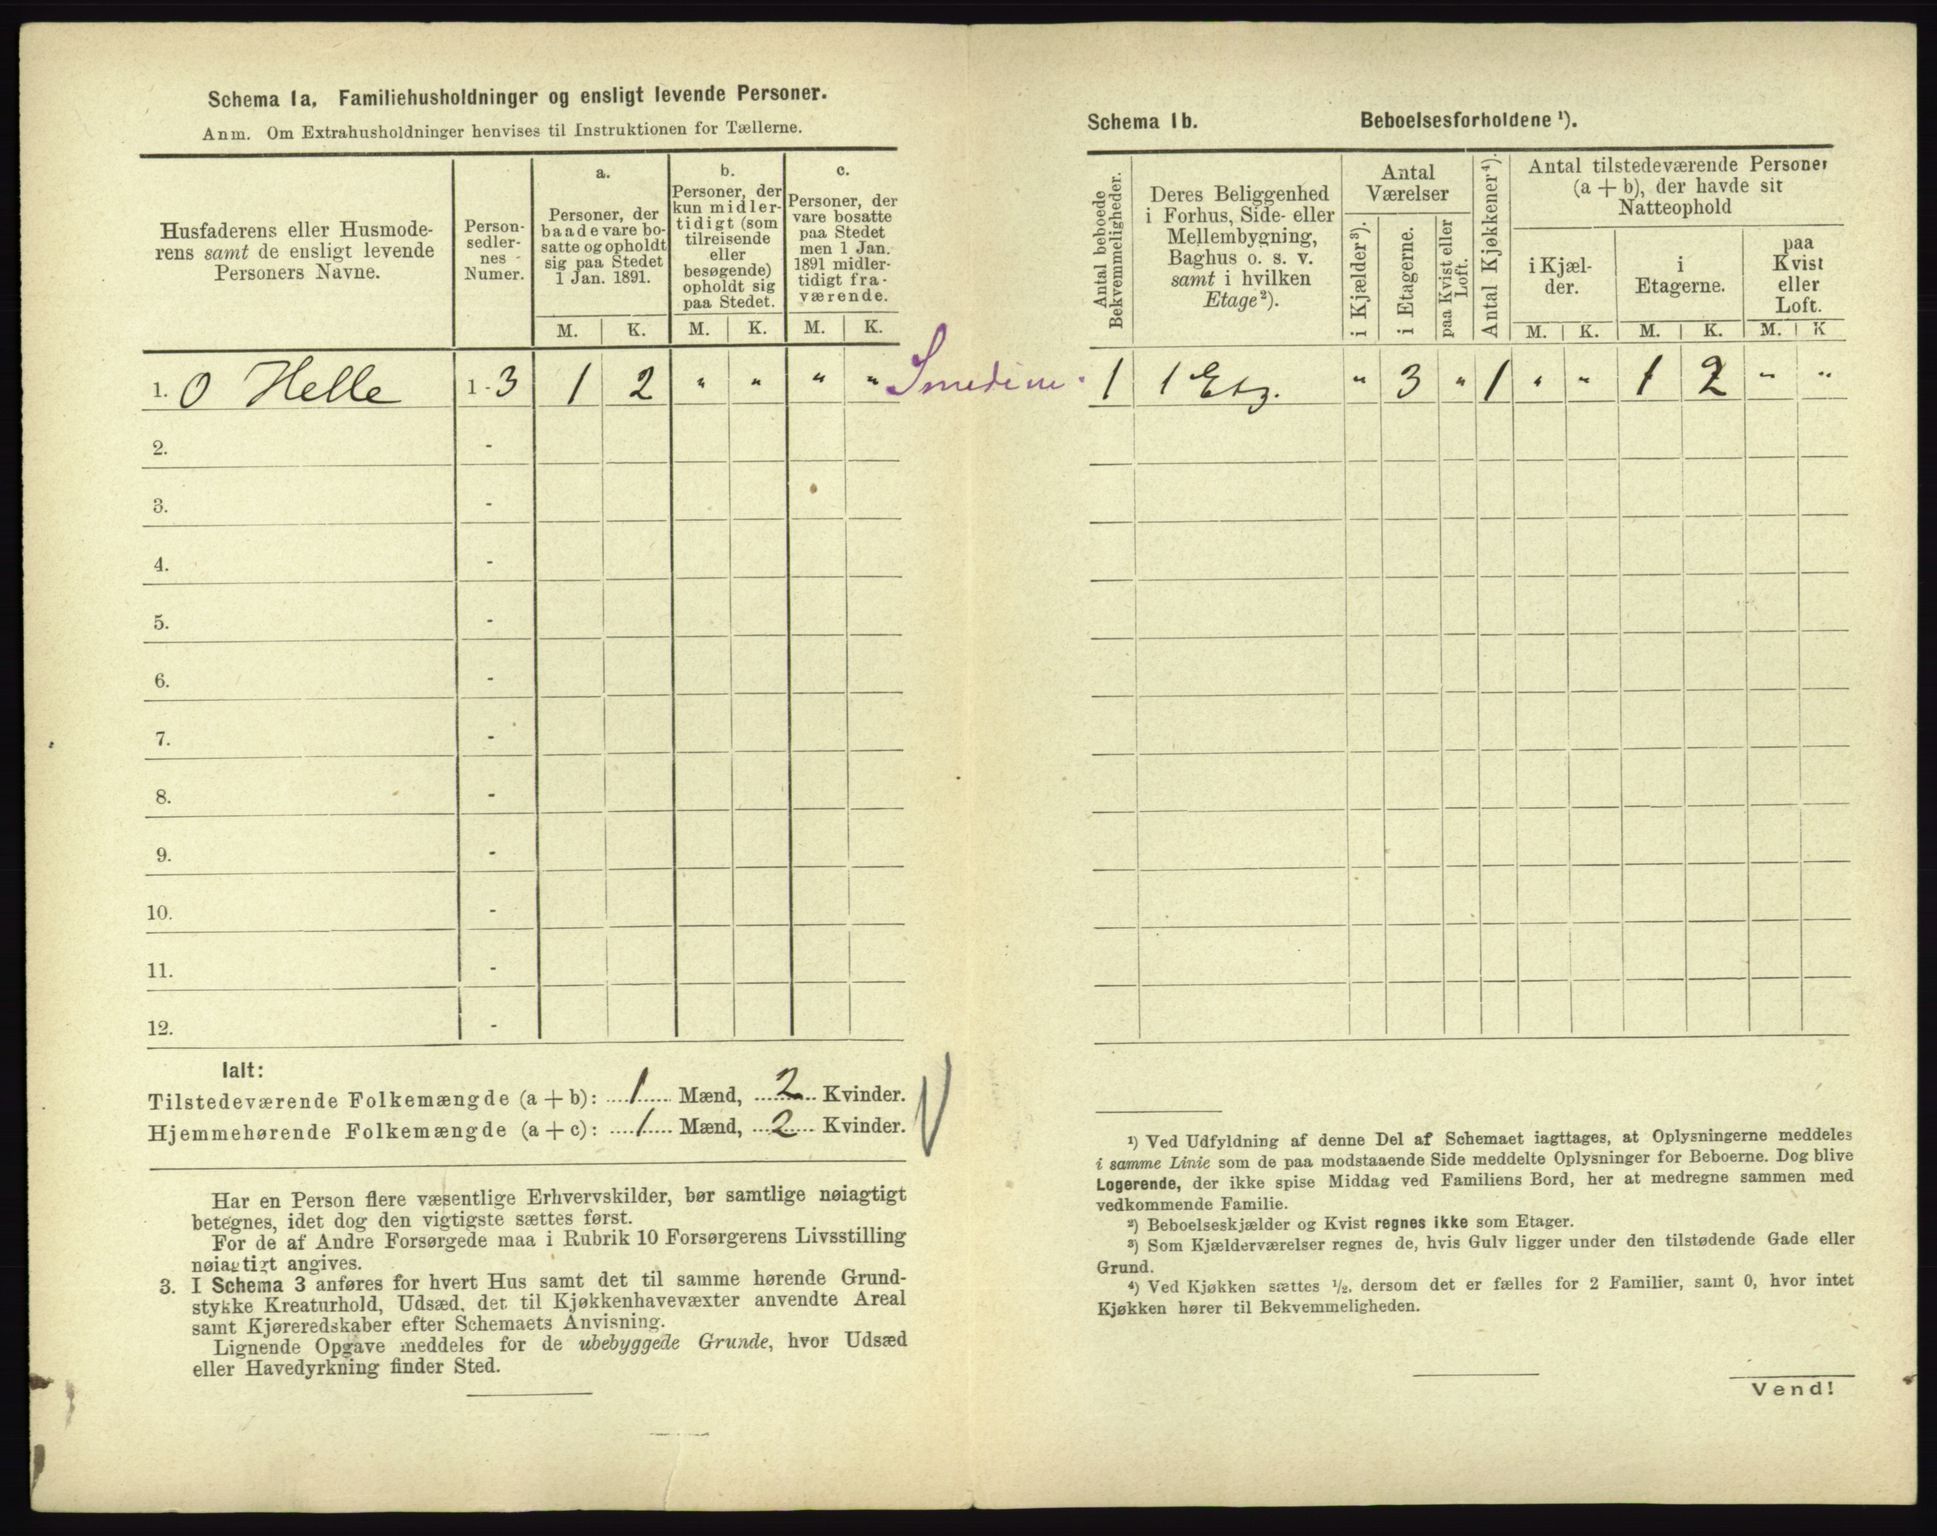 Schema 1a. Familiehusholdninger og ensligt levende Personer.
Anm. Om Extrahusholdninger henvises til Instruktionen for Tællerne.
Husfaderens eller Husmode-
rens samt de ensligt levende
Personers Navne.
Person-
sedler-
nes
Numer.
a.
Personer, der
baade vare bo-
satte og opholdt
sig paa Stedet
1 Jan. 1891.
b.
Personer, der
kun midler-
tidigt (som
tilreisende
eller
besøgende)
opholdt sig
paa Stedet.
c.
Personer, der
vare bosatte
paa Stedet
men 1 Jan.
1891 midler-
tidigt fra-
værende.
M. K. M. K. M. K.
1. O Helle 1-3 1 2 " " " "
2. -
3. -
4. -
5. -
6. -
7. -
8. -
9. -
10. -
11. -
12. -
Ialt:
Tilstedeværende Folkemængde (a + b): 1 Mænd, 2 Kvinder.
Hjemmehørende Folkemængde (a + c): 1 Mænd, 2 Kvinder.
Har en Person flere væsentlige Erhvervskilder, bør samtlige nøiagtigt
betegnes, idet dog den vigtigste sættes først.
For de af Andre Forsørgede maa i Rubrik 10 Forsørgerens Livsstilling
nøiagtigt angives.
3. I Schema 3 anføres for hvert Hus samt det til samme hørende Grund-
stykke Kreaturhold, Udsæd, det til Kjøkkenhavevæxter anvendte Areal
samt Kjøreredskaber efter Schemaets Anvisning.
Lignende Opgave meddeles for de ubebyggede Grunde, hvor Udsæd
eller Havedyrkning finder Sted.
Schema 1b. Beboelsesforholdene ¹).
Antal beboede
Bekvemmeligheder.
Deres Beliggenhed
i Forhus, Side- eller
Mellembygning,
Baghus o. s. v.
samt i hvilken
Etage ²).
Antal
Værelser
i Kjælder ³).
i Etagerne.
paa Kvist eller
Loft.
Antal Kjøkkener ⁴).
Antal tilstedeværende Personer
(a + b), der havde sit
Natteophold
i Kjæl-
der.
i
Etagerne.
paa
Kvist
eller
Loft.
M. K. M. K. M. K
1 1 Etg. " 3 " 1 " " 1 2 " "
¹) Ved Udfyldning af denne Del af Schemaet iagttages, at Oplysningerne meddeles
i samme Linie som de paa modstaaende Side meddelte Oplysninger for Beboerne. Dog blive
Logerende, der ikke spise Middag ved Familiens Bord, her at medregne sammen med
vedkommende Familie.
²) Beboelseskjælder og Kvist regnes ikke som Etager.
³) Som Kjælderværelser regnes de, hvis Gulv ligger under den tilstødende Gade eller
Grund.
⁴) Ved Kjøkken sættes ½, dersom det er fælles for 2 Familier, samt 0, hvor intet
Kjøkken hører til Bekvemmeligheden.
Vend!